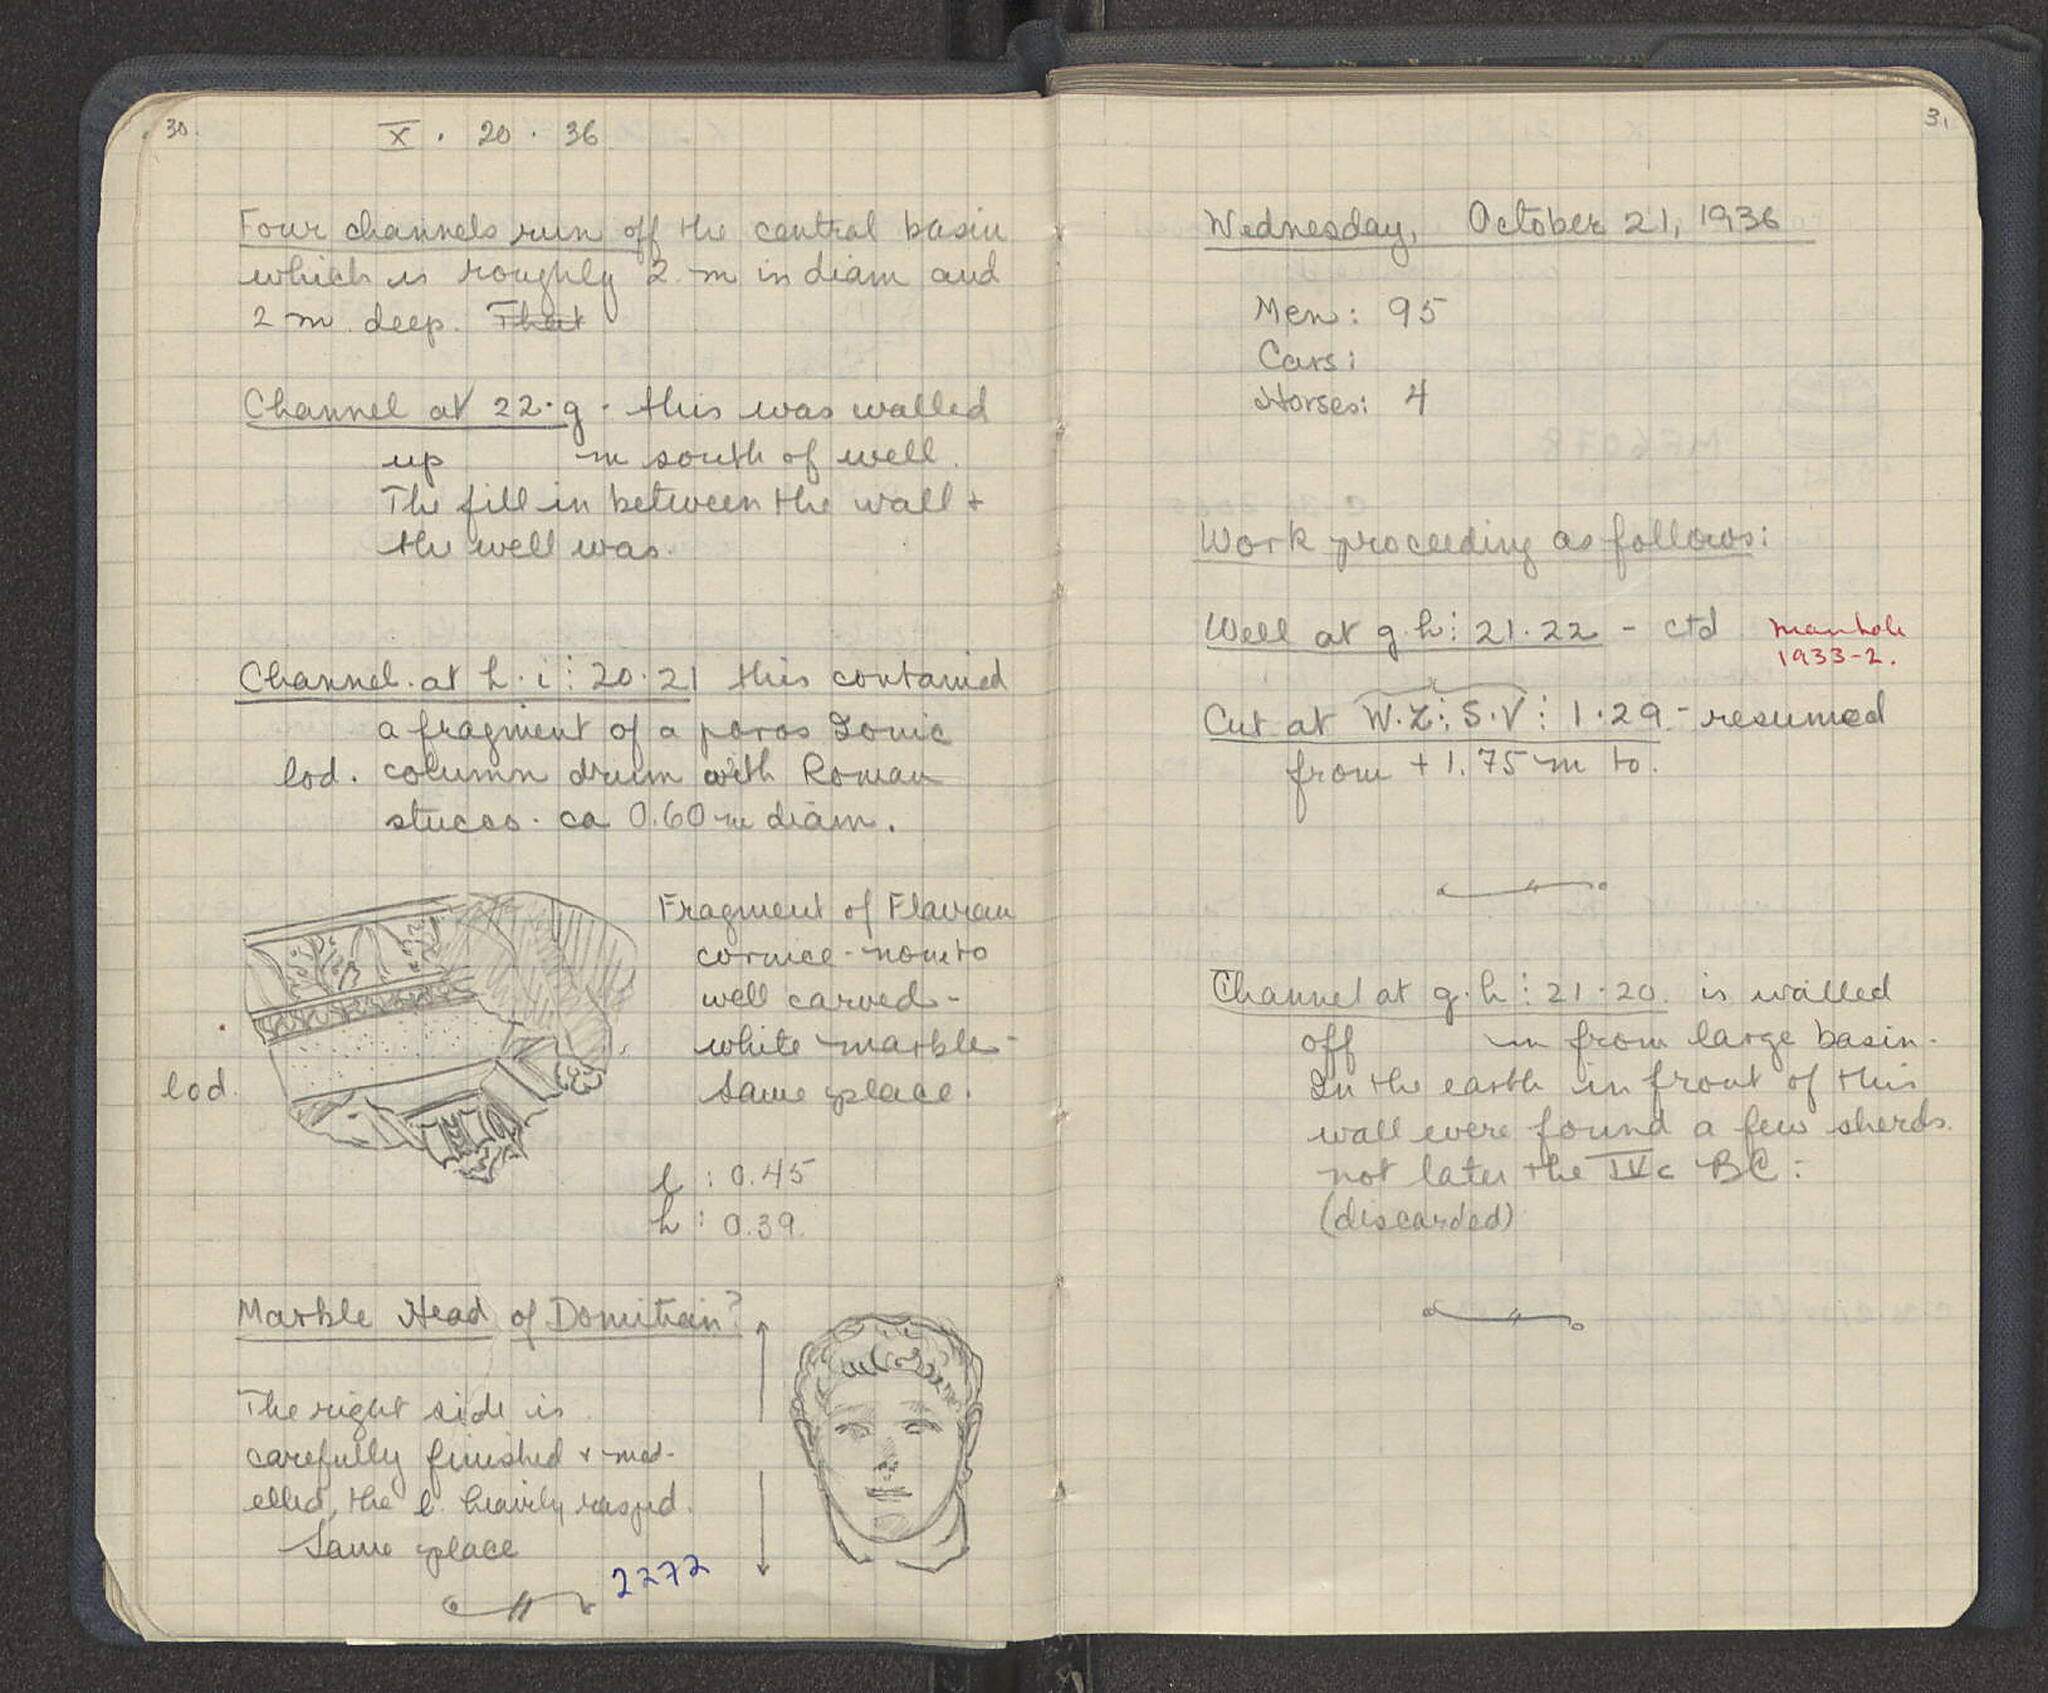 30.
X . 20 . 36
Four channels run off the central basin
which is roughly 2 m in diam and
2 m deep. That
Channel at 22.g - this was walled
up m south of well.
The fill in between the wall +
the well was.
Channel at h.i : 20.21 this contained
a fragment of a poros Ionic
lod. column drum with Roman
stucco. ca 0.60 m diam.
Fragment of Flavian
cornice - none to
well carved -
white marble -
Same place.
lod.
l : 0.45
h : 0.39.
Marble Head of Domitian?
The right side is
carefully finished + mod-
elled, the l. heavily rasped.
Same place
2272
31
Wednesday, October 21, 1936
Men: 95
Cars:
Horses: 4
Work proceeding as follows:
Well at g.h : 21.22 - ctd
manhole
1933-2.
Cut at W.Z : S.V : 1.29 - resumed
from + 1.75 m to.
Channel at g.h : 21.20. is walled
off m from large basin.
In the earth in front of this
wall were found a few sherds.
not later the IVc BC :
(discarded)